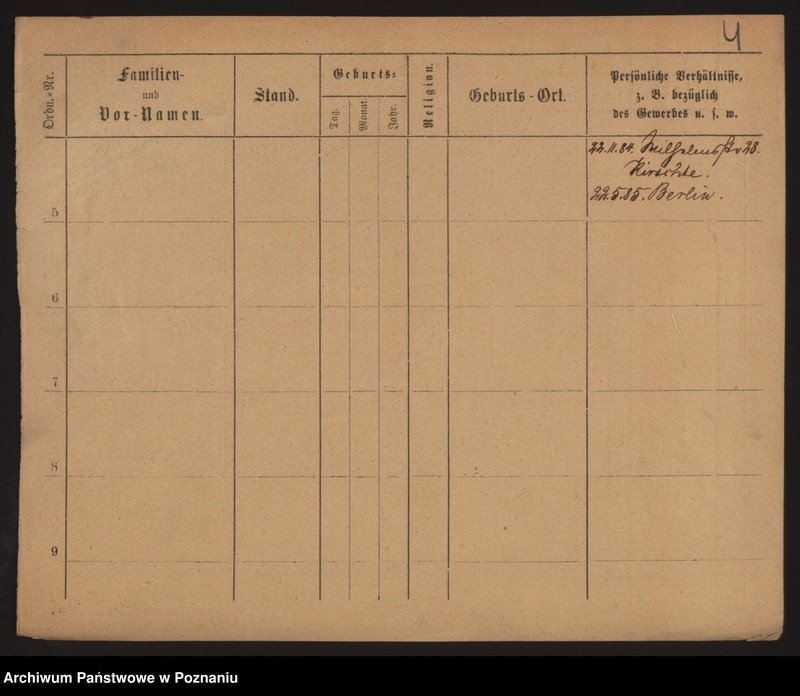 4
Ordn.-Nr.
Familien-
und
Vor-Namen.
Stand.
Geburts-
Tag.
Monat.
Jahr.
Religion.
Geburts-Ort.
Persönliche Verhältnisse,
z. B. bezüglich
des Gewerbes u. s. w.
22.11.84. Wilhelmsstr 28.
Hirschte.
22.5.85. Berlin.
5
6
7
8
9
Archiwum Państwowe w Poznaniu